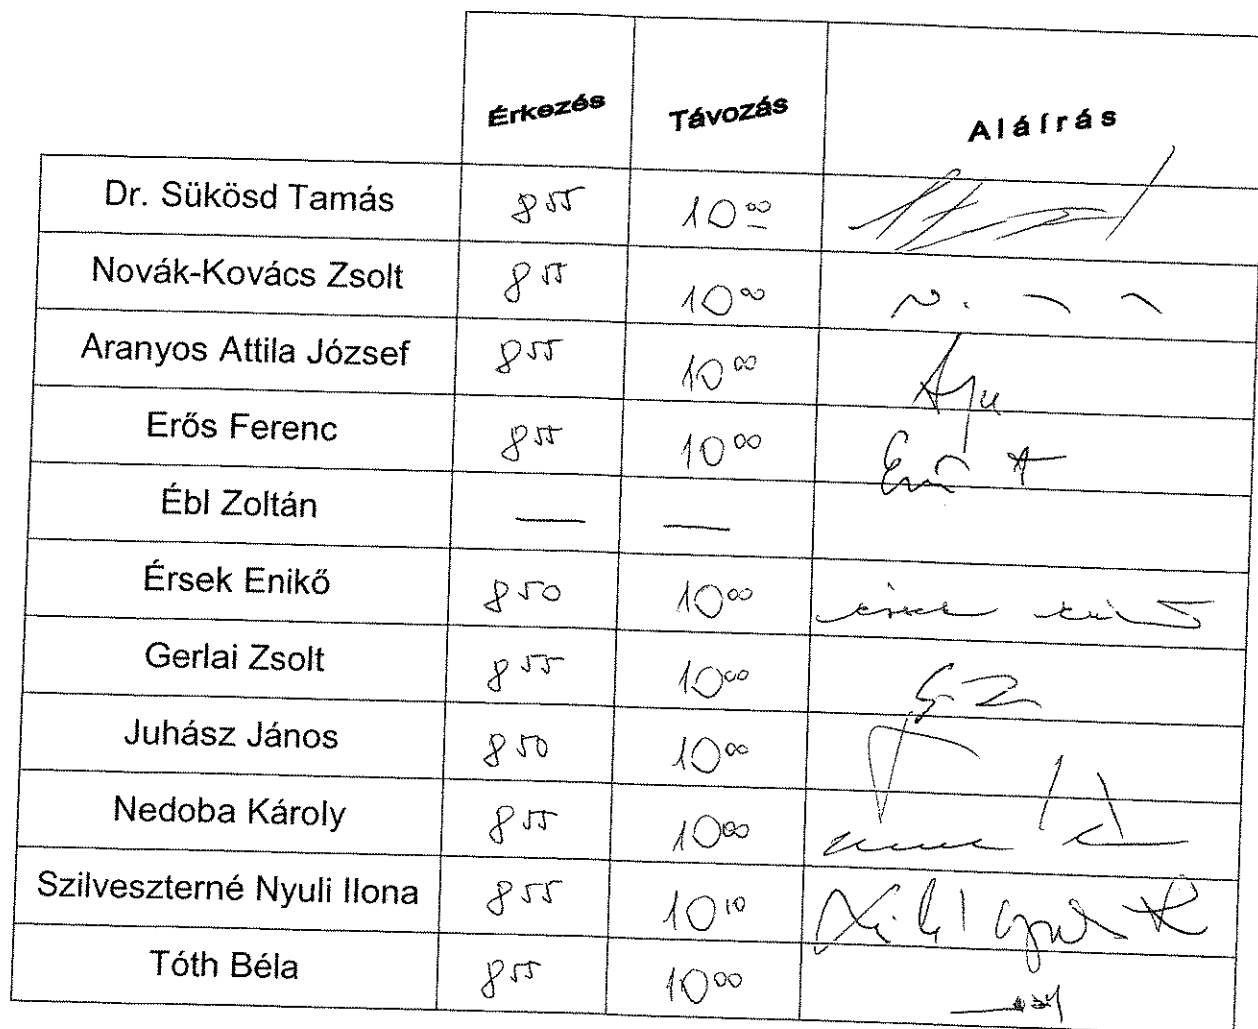 Érkezés Távozás Aláírás
Dr. Sükösd Tamás 8 55 10 00
Novák-Kovács Zsolt 8 55 10 00
Aranyos Attila József 8 55 10 00
Erős Ferenc 8 55 10 00
Ébl Zoltán — —
Érsek Enikő 8 50 10 00
Gerlai Zsolt 8 55 10 00
Juhász János 8 50 10 00
Nedoba Károly 8 55 10 00
Szilveszterné Nyuli Ilona 8 55 10 10
Tóth Béla 8 55 10 00